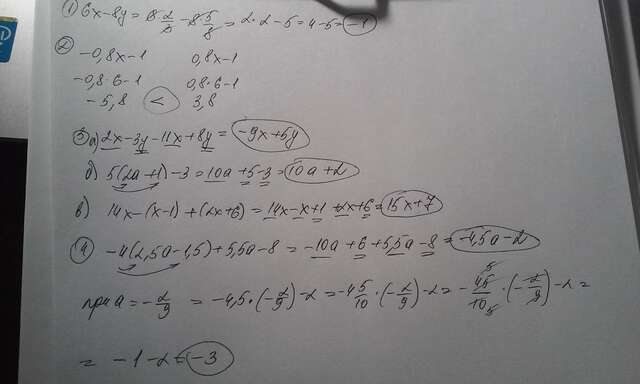 1) 6x-8y = 6·2/3 - 8·5/8 = 2·2-5 = 4-5 = -1
2) -0,8x-1 0,8x-1
-0,8·6-1 0,8·6-1
-5,8 < 3,8
3) а) 2x-3y-11x+8y = -9x+5y
б) 5(2a+1)-3 = 10a+5-3 = 10a+2
в) 14x-(x-1)+(2x+6) = 14x-x+1+2x+6 = 15x+7
4) -4(2,5a-1,5)+5,5a-8 = -10a+6+5,5a-8 = -4,5a-2
при a = -2/9 = -4,5·(-2/9)-2 = -45/10·(-2/9)-2 = -45/10·(-2/9)-2 =
= -1-2 = -3